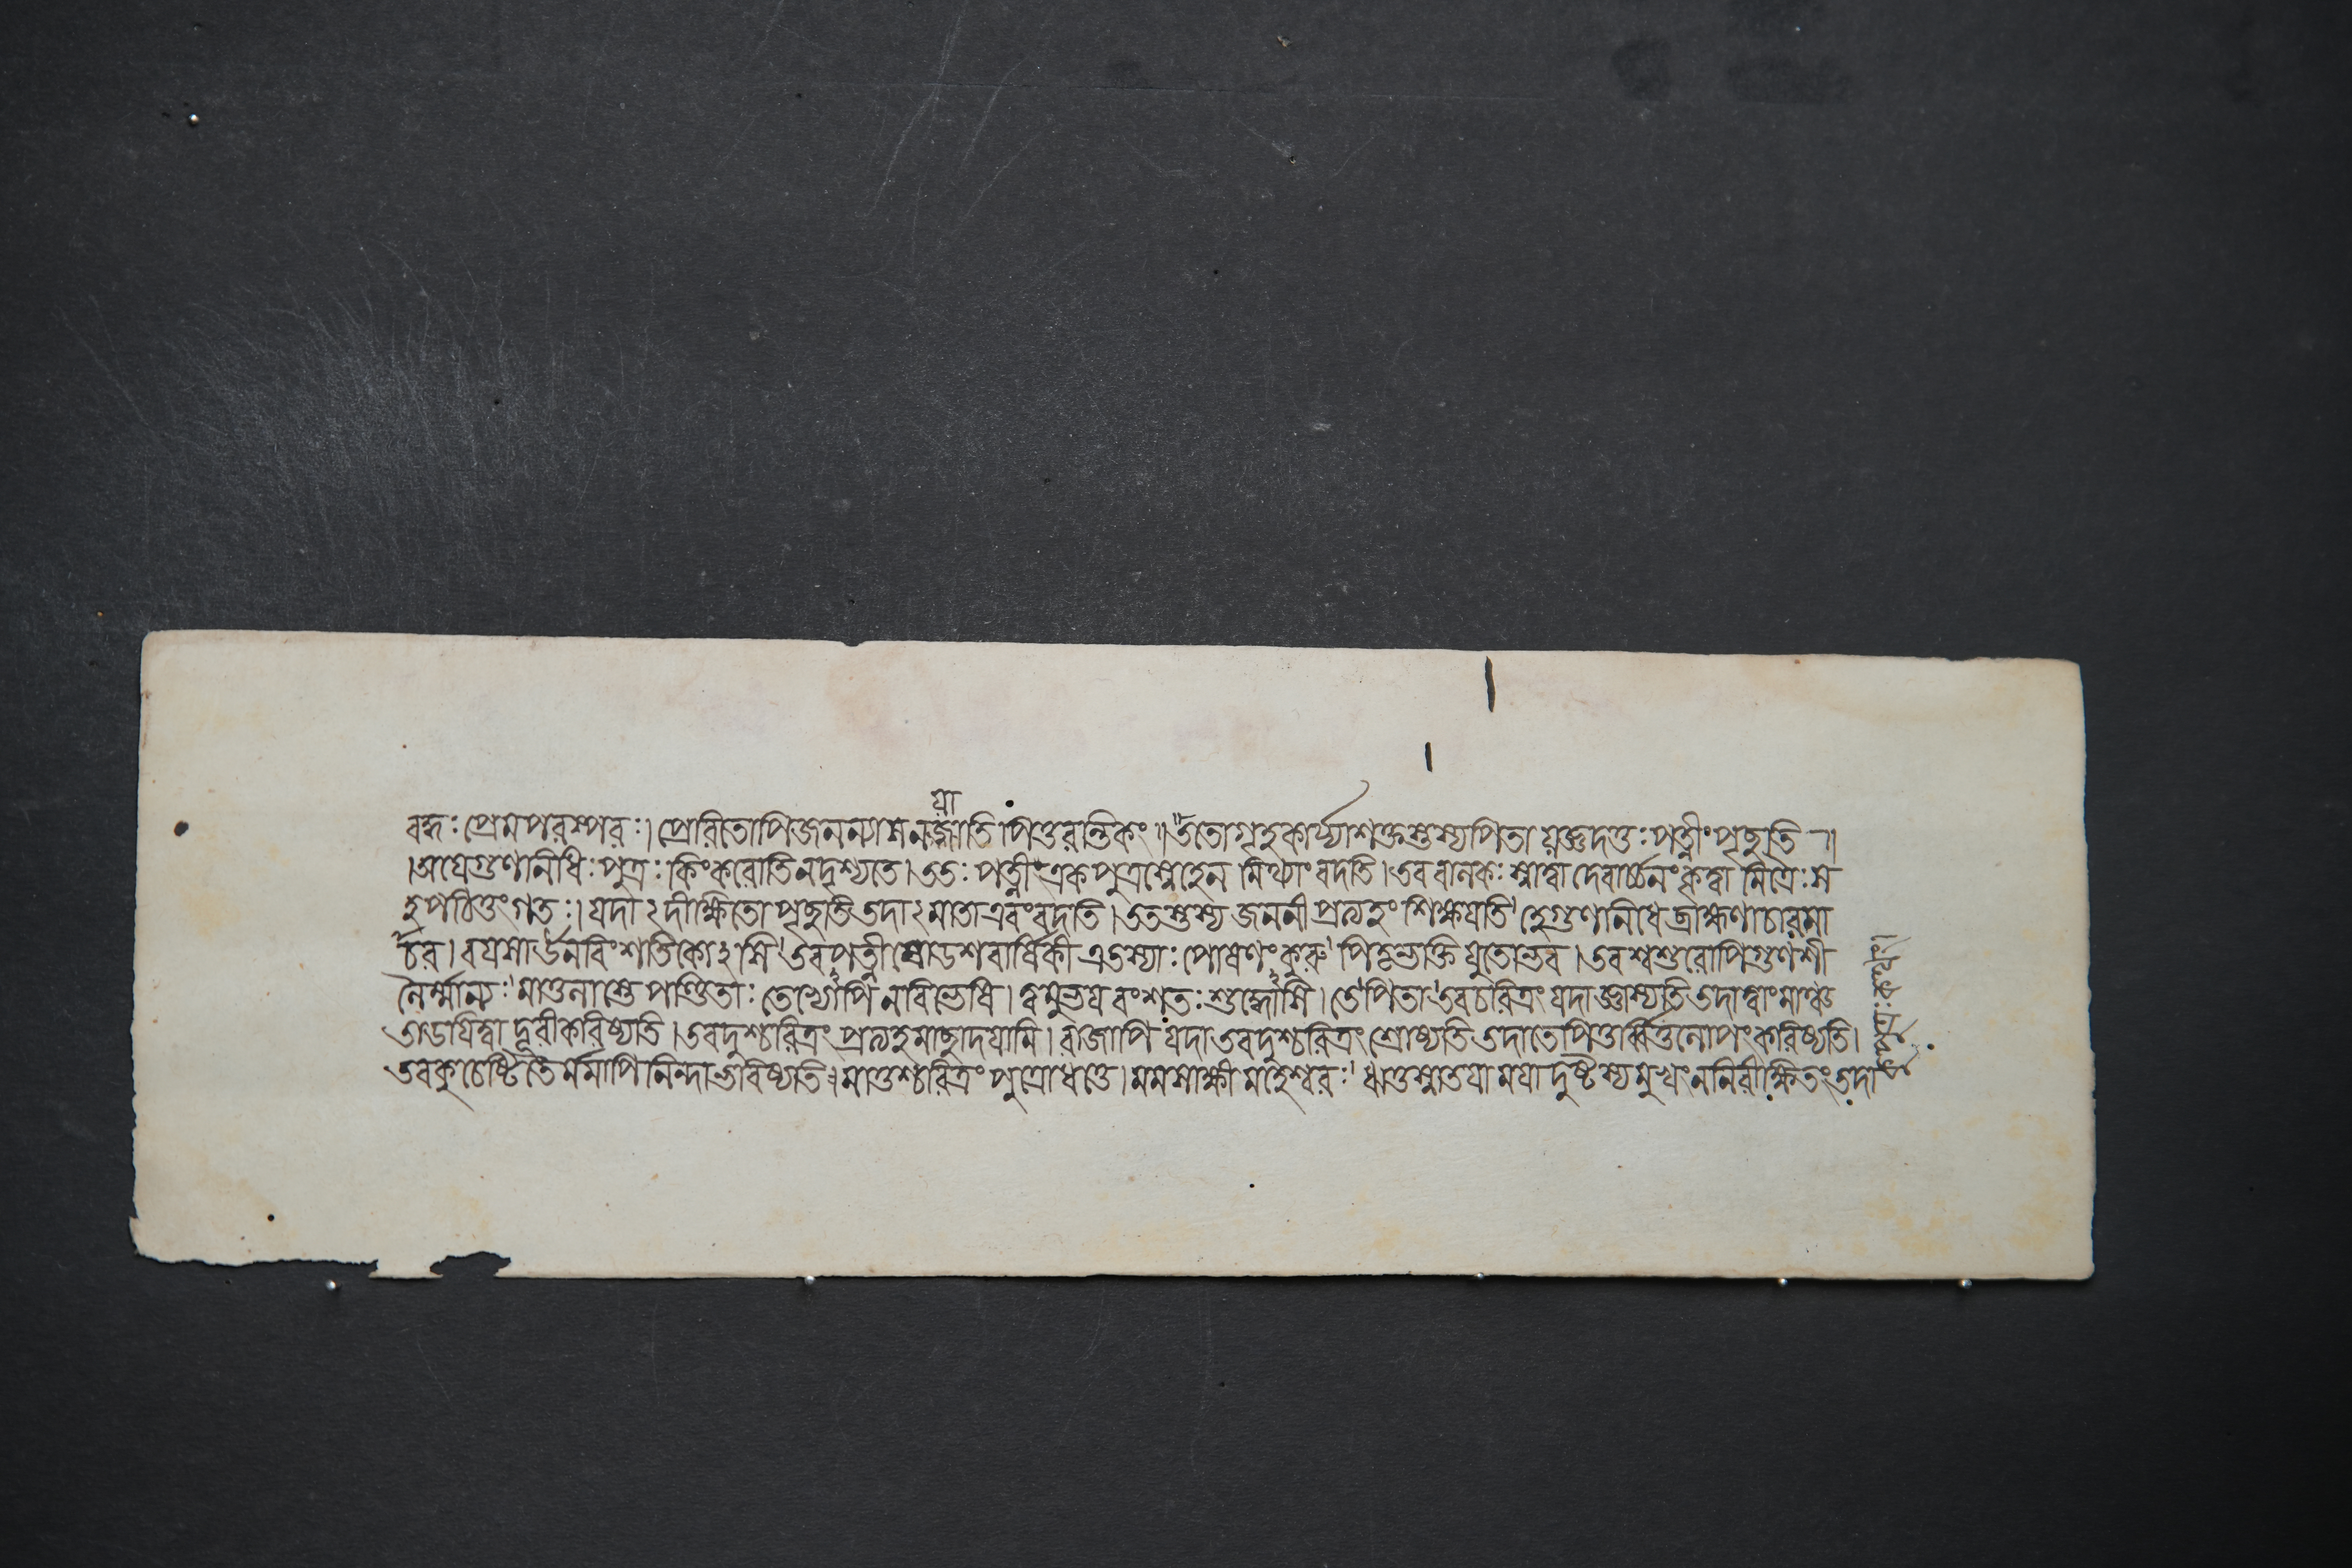 য়া
বদ্ধঃ প্রেমপরস্পরঃ। প্রেরিতোপিজনন্যাসনজাতি পিতুরান্তিকং॥ ততোগৃহকার্য্যাশক্তস্তস্যপিতা য়জ্ঞদত্তঃ পত্নীং পৃছ্যতি ৲॥
।অয়েগুণানিধিঃ পুত্রঃ কিংকরোতিনদৃশ্যতে। ততঃ পত্নীং একপুত্রস্নেহেন মিথ্যাং বদতি। তব বানকঃ স্নাত্বা দেবার্চ্চনং কৃত্বা মিত্রৈঃ স
হ পঠিতুংগতঃ। যদা২ দীক্ষিতো পৃছ্যতি তদা২ মাতা এবংবদতি। ততস্তস্য জননী প্রত্যহং শিক্ষয়তি হেগুণানিধে ব্রাহ্মণাচারমা
চর। বয়সার্ঊনবিংশতিকোঽসি তবপত্নী ষোডশবার্ষিকী এতস্যাঃ পোষণং কুরু পিতৃভক্তি যুতোভব। তব শ্বশুরোপিগুণশী
নৈর্ম্মান্যঃ মাতুনাস্তে পণ্ডিতাঃ তেভ্যোপি নবিভেষি। ত্বমুভয়বংশতঃ শুদ্ধোসি। তে পিতা তবচরিত্রং যদা জ্ঞাস্যতি তদাত্বাংমাঞ্চ
তাডয়িত্বা দূরীকরিষ্যতি। তবদুশ্চরিত্রং প্রত্যহমাছাদয়ামি। রাজাপি যদা তবদুশ্চরিত্রং শ্রোষ্যতি তদাতেপিতুর্ব্বিত্তনোপং করিষ্যতি।
তবকুচেষ্টিতৈর্মমাপি নিন্দা ভবিষ্যতি। মাতুশ্চরিত্রং পুত্রোধত্তে। মমসাক্ষী মহেশ্বরঃ। ঋতুস্নাতয়া ময়া দুষ্টস্যমুখং ননিরীক্ষিতং তদা